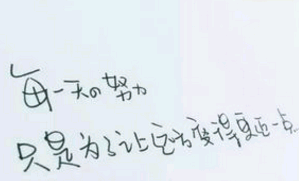 每一天的努力
只是为了让远方变得更近一点